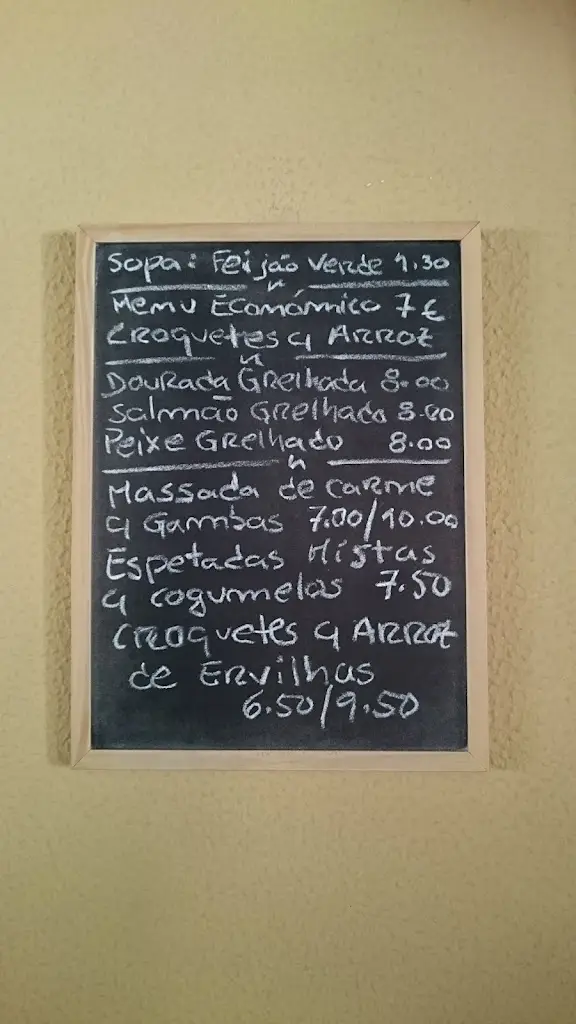 Sopa: Feijão Verde 1.30
Menu Económico 7 €
Croquetes c/ Arroz
Dourada Grelhada 8.00
Salmão Grelhado 8.00
Peixe Grelhado 8.00
Massada de carne
c/ Gambas 7.00/10.00
Espetadas Mistas
c/ cogumelos 7.50
Croquetes c/ Arroz
de Ervilhas
6.50/9.50